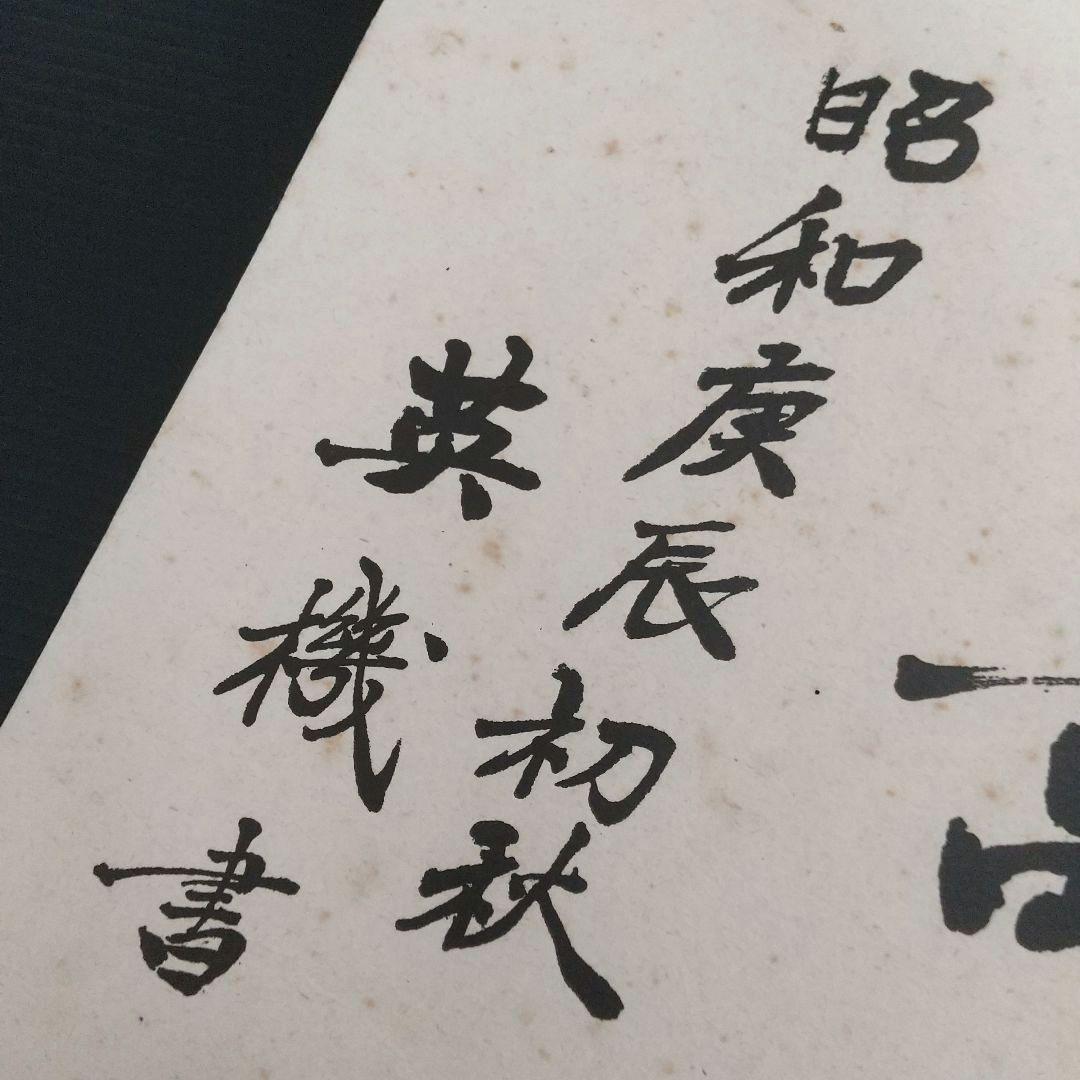 昭和庚辰初秋
英機書